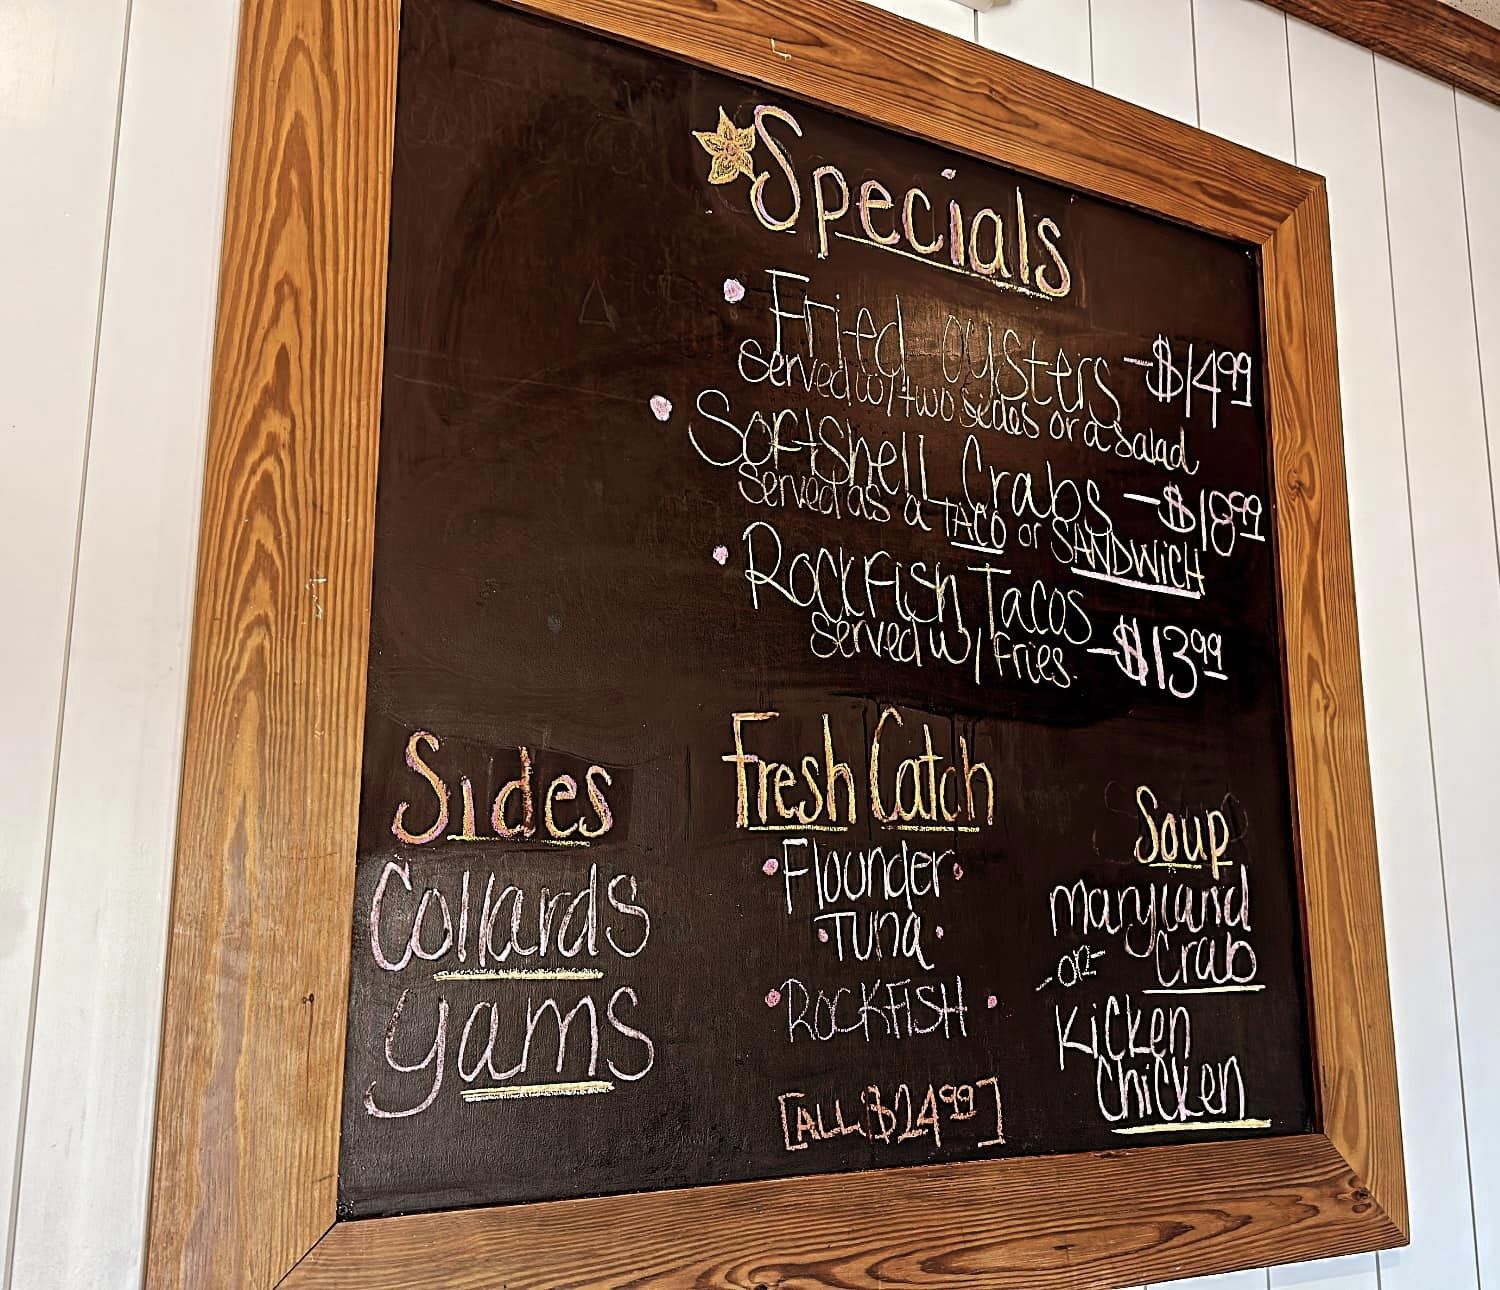 Specials
• Fried oysters - $14.99
Served w/ two sides or a salad
• SoftShell Crabs - $18.99
Served as a TACO or SANDWiCH
• RockFish Tacos
Served w/ Fries. - $13.99
Sides
Collards
Yams
Fresh Catch
• Flounder •
• Tuna •
• RockFISH •
[ALL $24.99]
Soup
Maryland
Crab
-or-
Kicken
Chicken